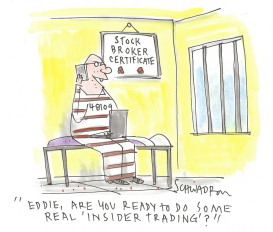 STOCK
BROKER
CERTIFICATE
48109
SCHWADRON
" EDDIE, ARE YOU READY TO DO SOME
REAL 'INSIDER TRADING'?"